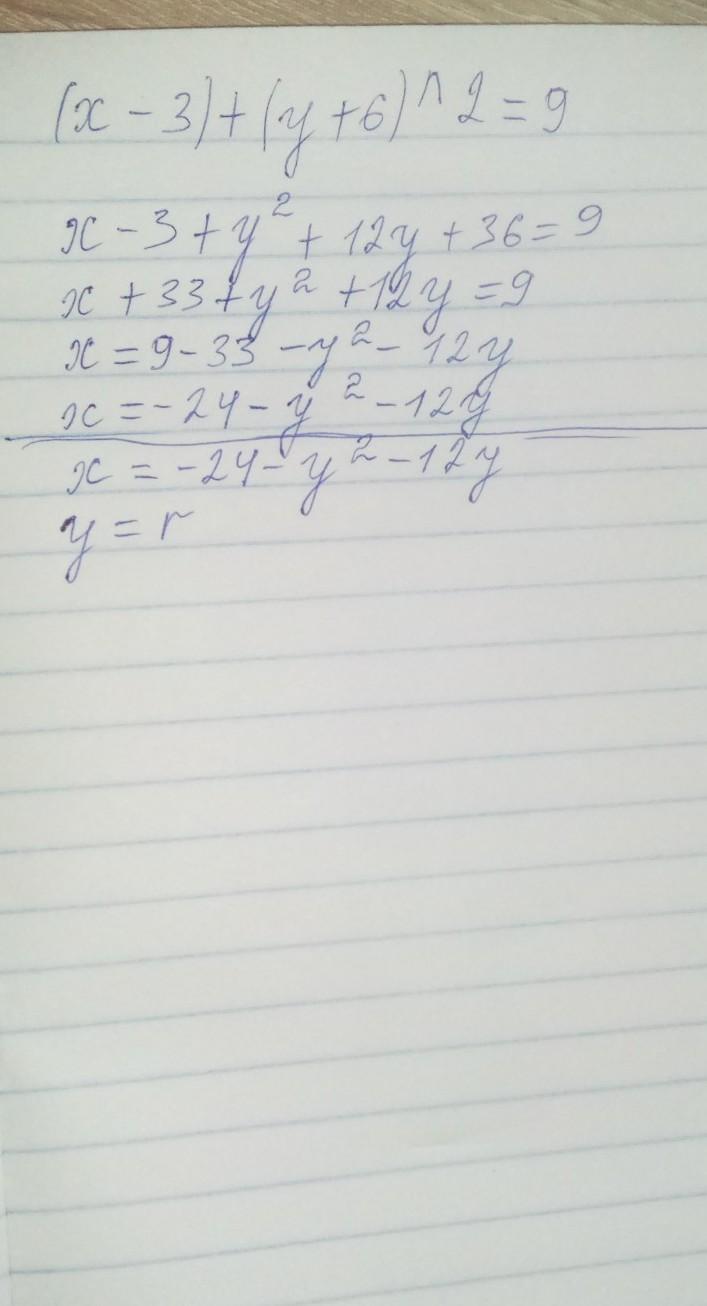 (x - 3) + (y + 6) ^ 2 = 9
x - 3 + y² + 12y + 36 = 9
x + 33 + y² + 12y = 9
x = 9 - 33 - y² - 12y
x = -24 - y² - 12y
x = -24 - y² - 12y
y = r